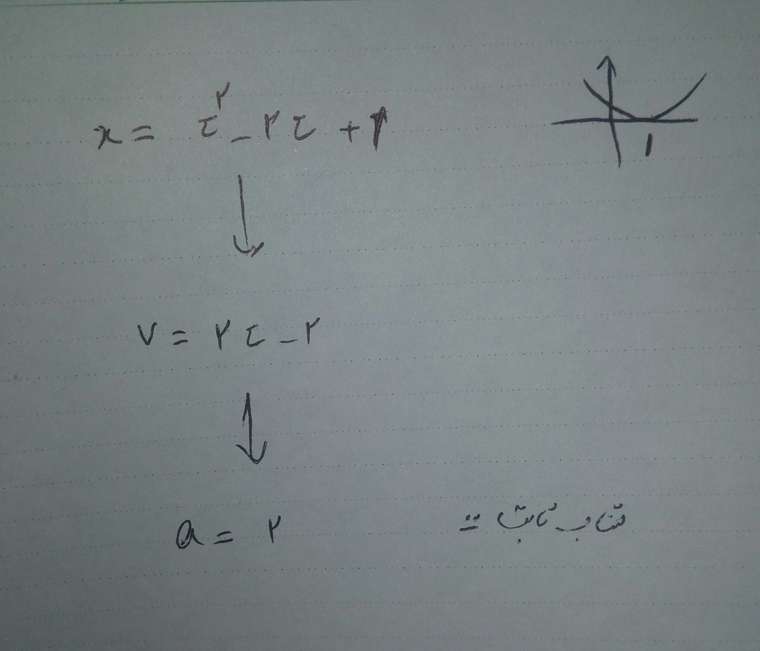 x = t^۲ - ۲t + ۱
۱
v = ۲t - ۲
a = ۲
شتاب ثابت =